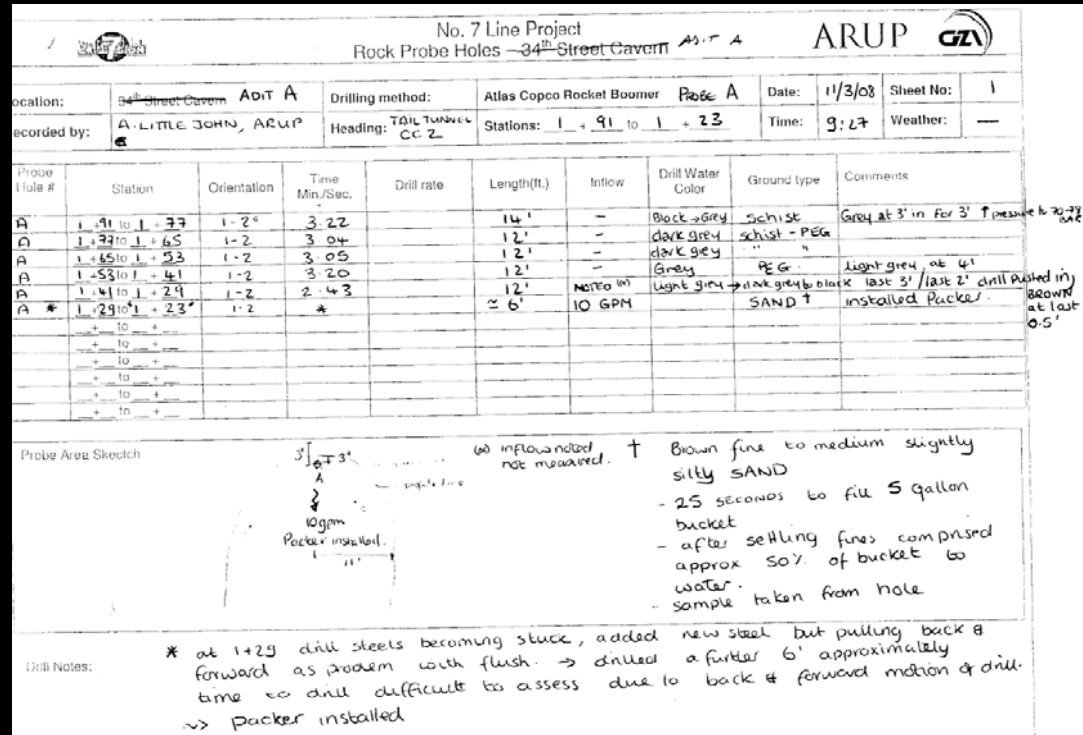 No. 7 Line Project
Rock Probe Holes 34th Street Cavern ADIT A
ARUP GZ
ocation: 34th Street Cavern ADIT A Drilling method: Atlas Copco Rocket Boomer PROBE A Date: 11/3/08 Sheet No: 1
ecorded by: A. LITTLE JOHN, ARUP Heading: TAIL TUNNEL CC 2 Stations: 1 + 91 to 1 + 23 Time: 9:27 Weather: —
Probe Hole # Station Orientation Time Min./Sec. Drill rate Length(ft.) Inflow Drill Water Color Ground type Comments
A 1 +91 to 1 + 77 1-2° 3.22 14' - Black → Grey Schist Grey at 3' in for 3' ↑ pressure to 70-79 BAR
A 1 +77 to 1 + 65 1-2 3 04 12' - dark grey schist - PEG
A 1 +65 to 1 + 53 1-2 3.05 12' - dark grey " "
A 1 +53 to 1 + 41 1-2 3.20 12' - Grey PEG. light grey, at 4'
A 1 +41 to 1 +29 1-2 2.43 12' NOTED (a) light grey → dark grey to black last 3' / last 2' drill pushed in, BROWN at last 0.5'
A * 1 +29 to 1 + 23 1-2 * ≃ 6' 10 GPM SAND † installed Packer.
+ to +
+ to +
+ to +
+ to +
+ to +
+ to +
Probe Area Skectch
3' 3'
A
10gpm
Packer installed.
11'
(a) inflow noted, not measured.
† Brown fine to medium slightly
silty SAND
- 25 seconds to fill 5 gallon
bucket
- after settling fines comprised
approx 50% of bucket to
water.
- sample taken from hole
Drill Notes:
* at 1+29 drill steels becoming stuck, added new steel but pulling back &
forward as problem with flush. → drilled a further 6' approximately
time to drill difficult to assess due to back & forward motion of drill.
~> packer installed